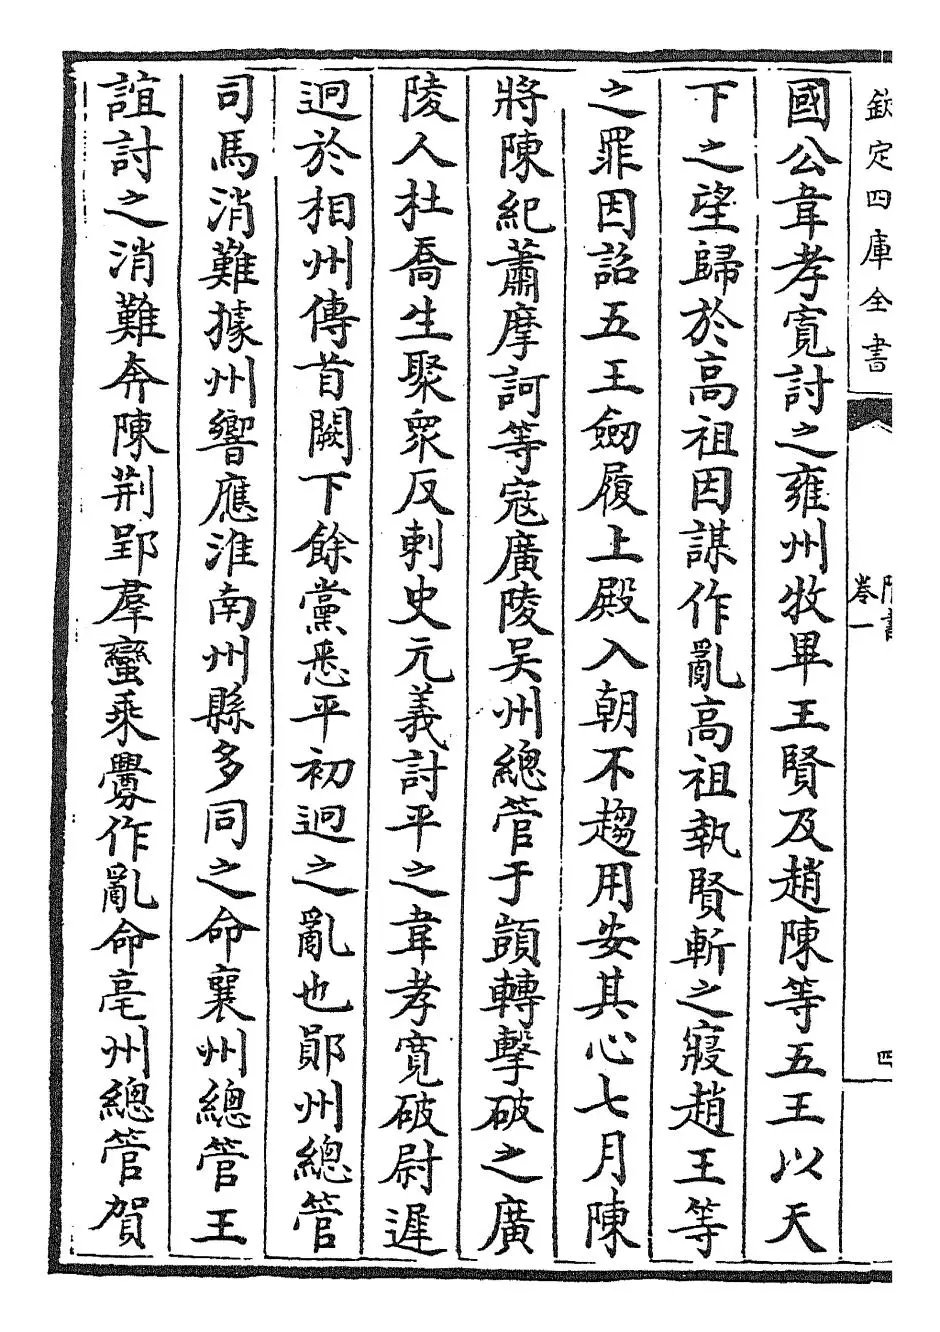 欽定四庫全書
隋書
卷一
四
國公韋孝寬討之雍州牧畢王賢及趙陳等五王以天
下之望歸於高祖因謀作亂高祖執賢斬之寢趙王等
之罪因詔五王劒履上殿入朝不趨用安其心七月陳
將陳紀蕭摩訶等寇廣陵吳州總管于顗轉擊破之廣
陵人杜喬生聚衆反刺史元義討平之韋孝寬破尉遲
迥於相州傳首闕下餘黨悉平初迥之亂也鄖州總管
司馬消難據州響應淮南州縣多同之命襄州總管王
誼討之消難奔陳荆郢羣蠻乘釁作亂命亳州總管賀